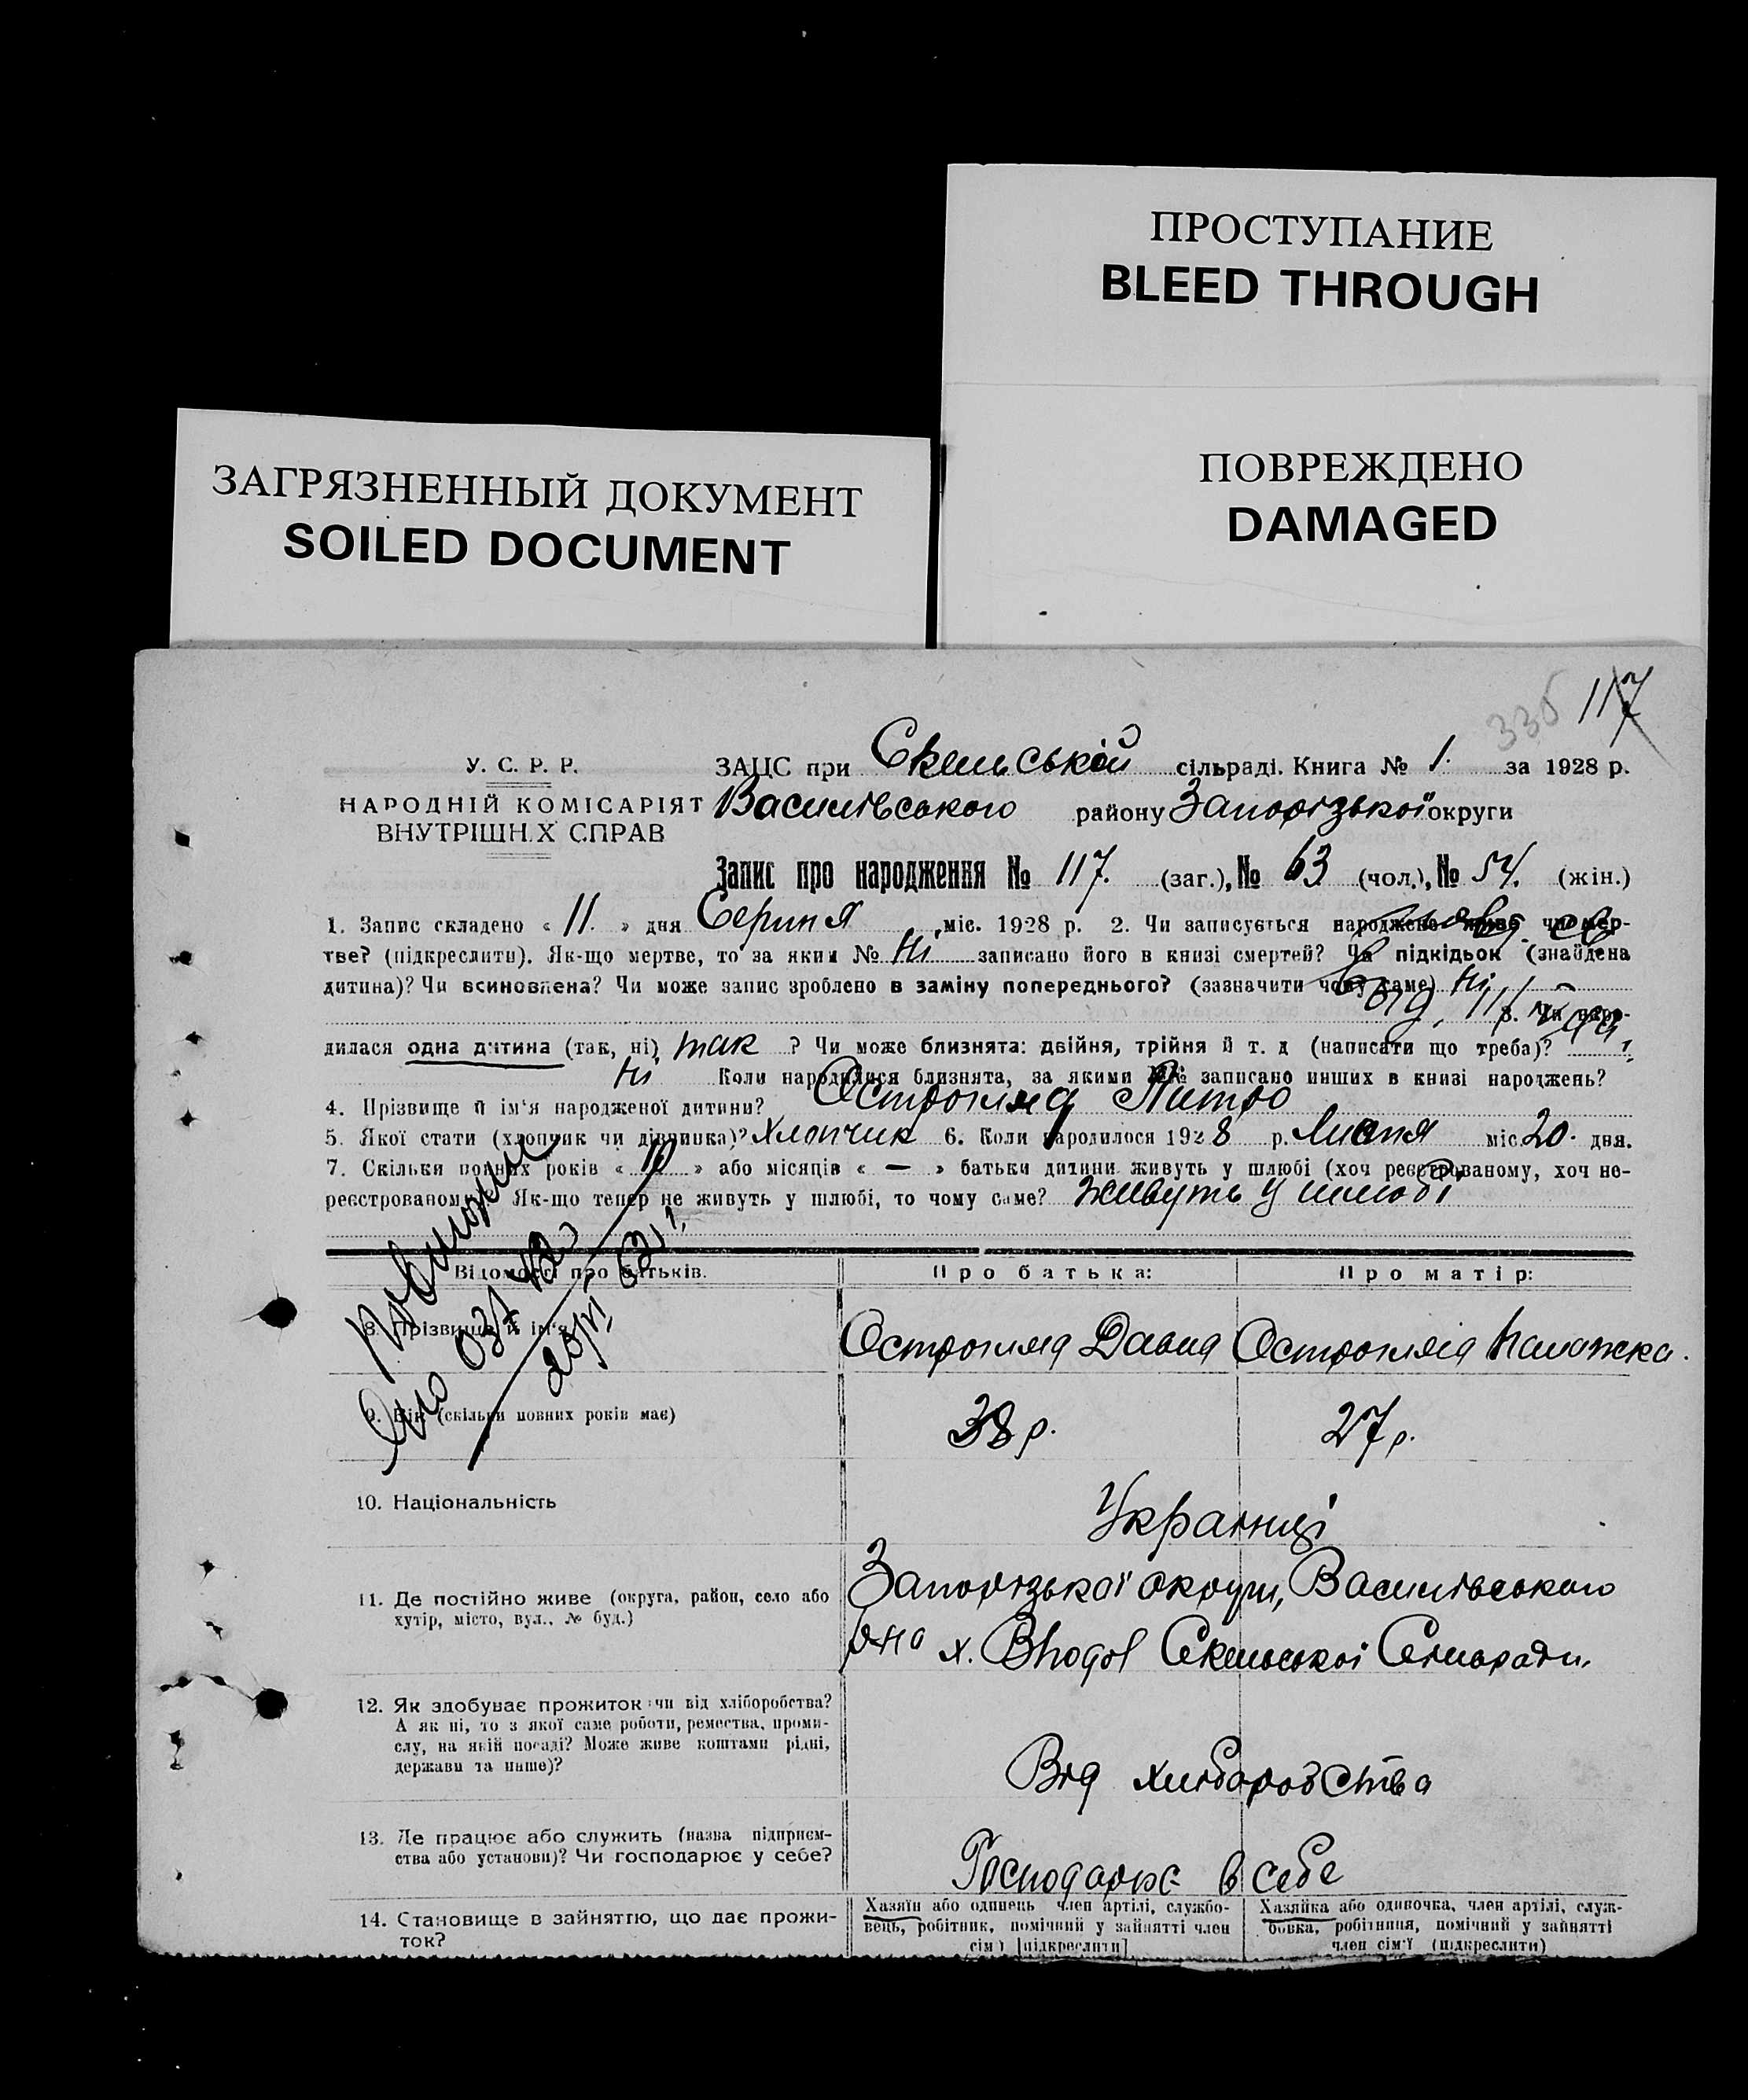 ПРОСТУПАНИЕ
BLEED THROUGH
ЗАГРЯЗНЕННЫЙ ДОКУМЕНТ
SOILED DOCUMENT
ПОВРЕЖДЕНО
DAMAGED
336 117
У. С. Р. Р.
НАРОДНІЙ КОМІСАРІЯТ
ВНУТРІШНІХ СПРАВ
ЗАЦС при Скельській сільраді. Книга № 1. за 1928 р.
Василівського району Запорізької округи
Запис про народження № 117. (заг.), № 63 (чол.), № 54. (жін.)
1. Запис складено « 11. » дня Серпня міс. 1928 р. 2. Чи записується народжене живе чи мер-
тве? (підкреслити). Як-що мертве, то за яким № Ні записано його в книзі смертей? Чи підкідьок (знайдена
дитина)? Чи всиновлена? Чи може запис зроблено в заміну попереднього? (зазначити чому саме) Ні
3. Чи наро-
дилася одна дитина (так, ні) так ? Чи може близнята: двійня, трійня й т. д (написати що треба)?
Ні Коли народилися близнята, за якими №№ записано инших в книзі народжень?
4. Прізвище й ім'я народженої дитини? Острогляд Питро
5. Якої стати (хлопчик чи дівчинка)? Хлопчик 6. Коли народилося 1928 р. Липня міс. 20. дня.
7. Скільки повних років « 10 » або місяців « — » батьки дитини живуть у шлюбі (хоч реєстрованому, хоч не-
реєстрованому) Як-що тепер не живуть у шлюбі, то чому саме? живуть у шлюбі
Відомості про батьків. Про батька: Про матір:
8. Прізвище й ім'я Острогляд Давид Острогляд Палажка.
9. Вік (скільки повних років має) 38 р. 27 р.
10. Національність Українці
11. Де постійно живе (округа, район, село або
хутір, місто, вул., № буд.)
Запорізької округи, Василівського
р-на х. Скельської Сільради.
12. Як здобуває прожиток: чи від хліборобства?
А як ні, то з якої саме роботи, ремества, проми-
слу, на якій посаді? Може живе коштами рідні,
держави та инше)?
Від хліборобства
13. Де працює або служить (назва підприєм-
ства або установи)? Чи господарює у себе?
Господарює в себе
14. Становище в зайняттю, що дає прожи-
ток?
Хазяїн або одинець член артілі, службо-
вець, робітник, помічний у зайнятті член
сім'ї [підкреслити]
Хазяйка або одиночка, член артілі, служ-
бовка, робітниця, помічний у зайнятті
член сім'ї (підкреслити)